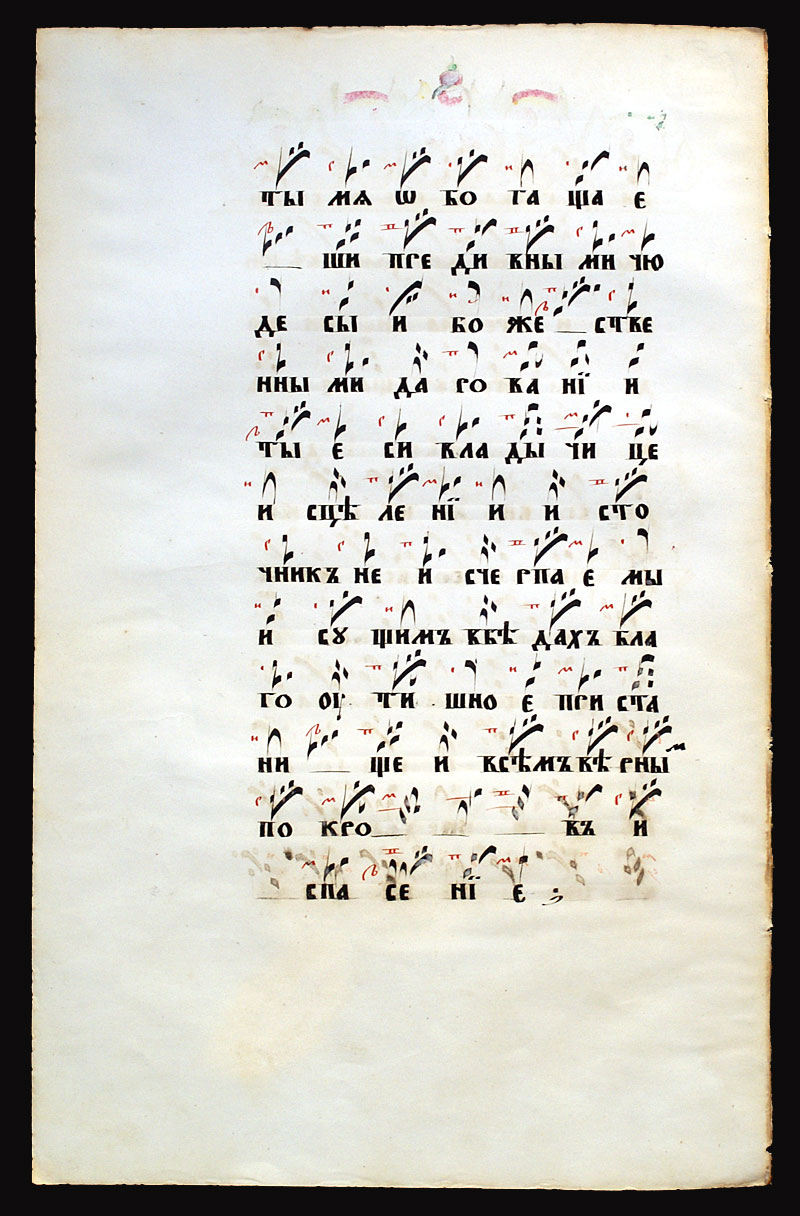 ты мѧ ѡ бо га ща е
ши пре ди вны ми чю
де сы и бо же стве
нны ми да ро ва нїи и
ты е си вла ды чи це
и сцѣ ле нїи и и сто
чникъ не и сче рпа е мы
и су щимъ вбѣ дахъ бла
го оу ти шно е при ста
ни ще и всѣмъ вѣ рны м
по кро въ и
спа се нїе